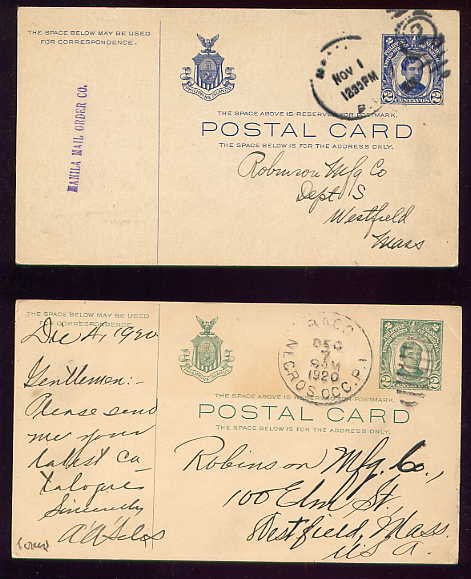 THE SPACE BELOW MAY BE USED
FOR CORRESPONDENCE.
MANILA MAIL ORDER CO.
NOV 1
12 30 PM
P.I.
2 CENTAVOS 2
THE SPACE ABOVE IS RESERVED FOR POSTMARK.
POSTAL CARD
THE SPACE BELOW IS FOR THE ADDRESS ONLY.
Robinson Mfg Co
Dept S
Westfield
Mass
THE SPACE BELOW MAY BE USED
FOR CORRESPONDENCE.
Dec 4, 1920
Gentlemen:-
Please send
me your
latest ca-
talogues
Sincerely
(over)
DEC
7
1920
NEGROS OCC. P.I.
2 CENTAVOS 2
THE SPACE ABOVE IS RESERVED FOR POSTMARK.
POSTAL CARD
THE SPACE BELOW IS FOR THE ADDRESS ONLY.
Robinson Mfg. Co.,
100 Elm St,
Westfield, Mass.
U.S.A.